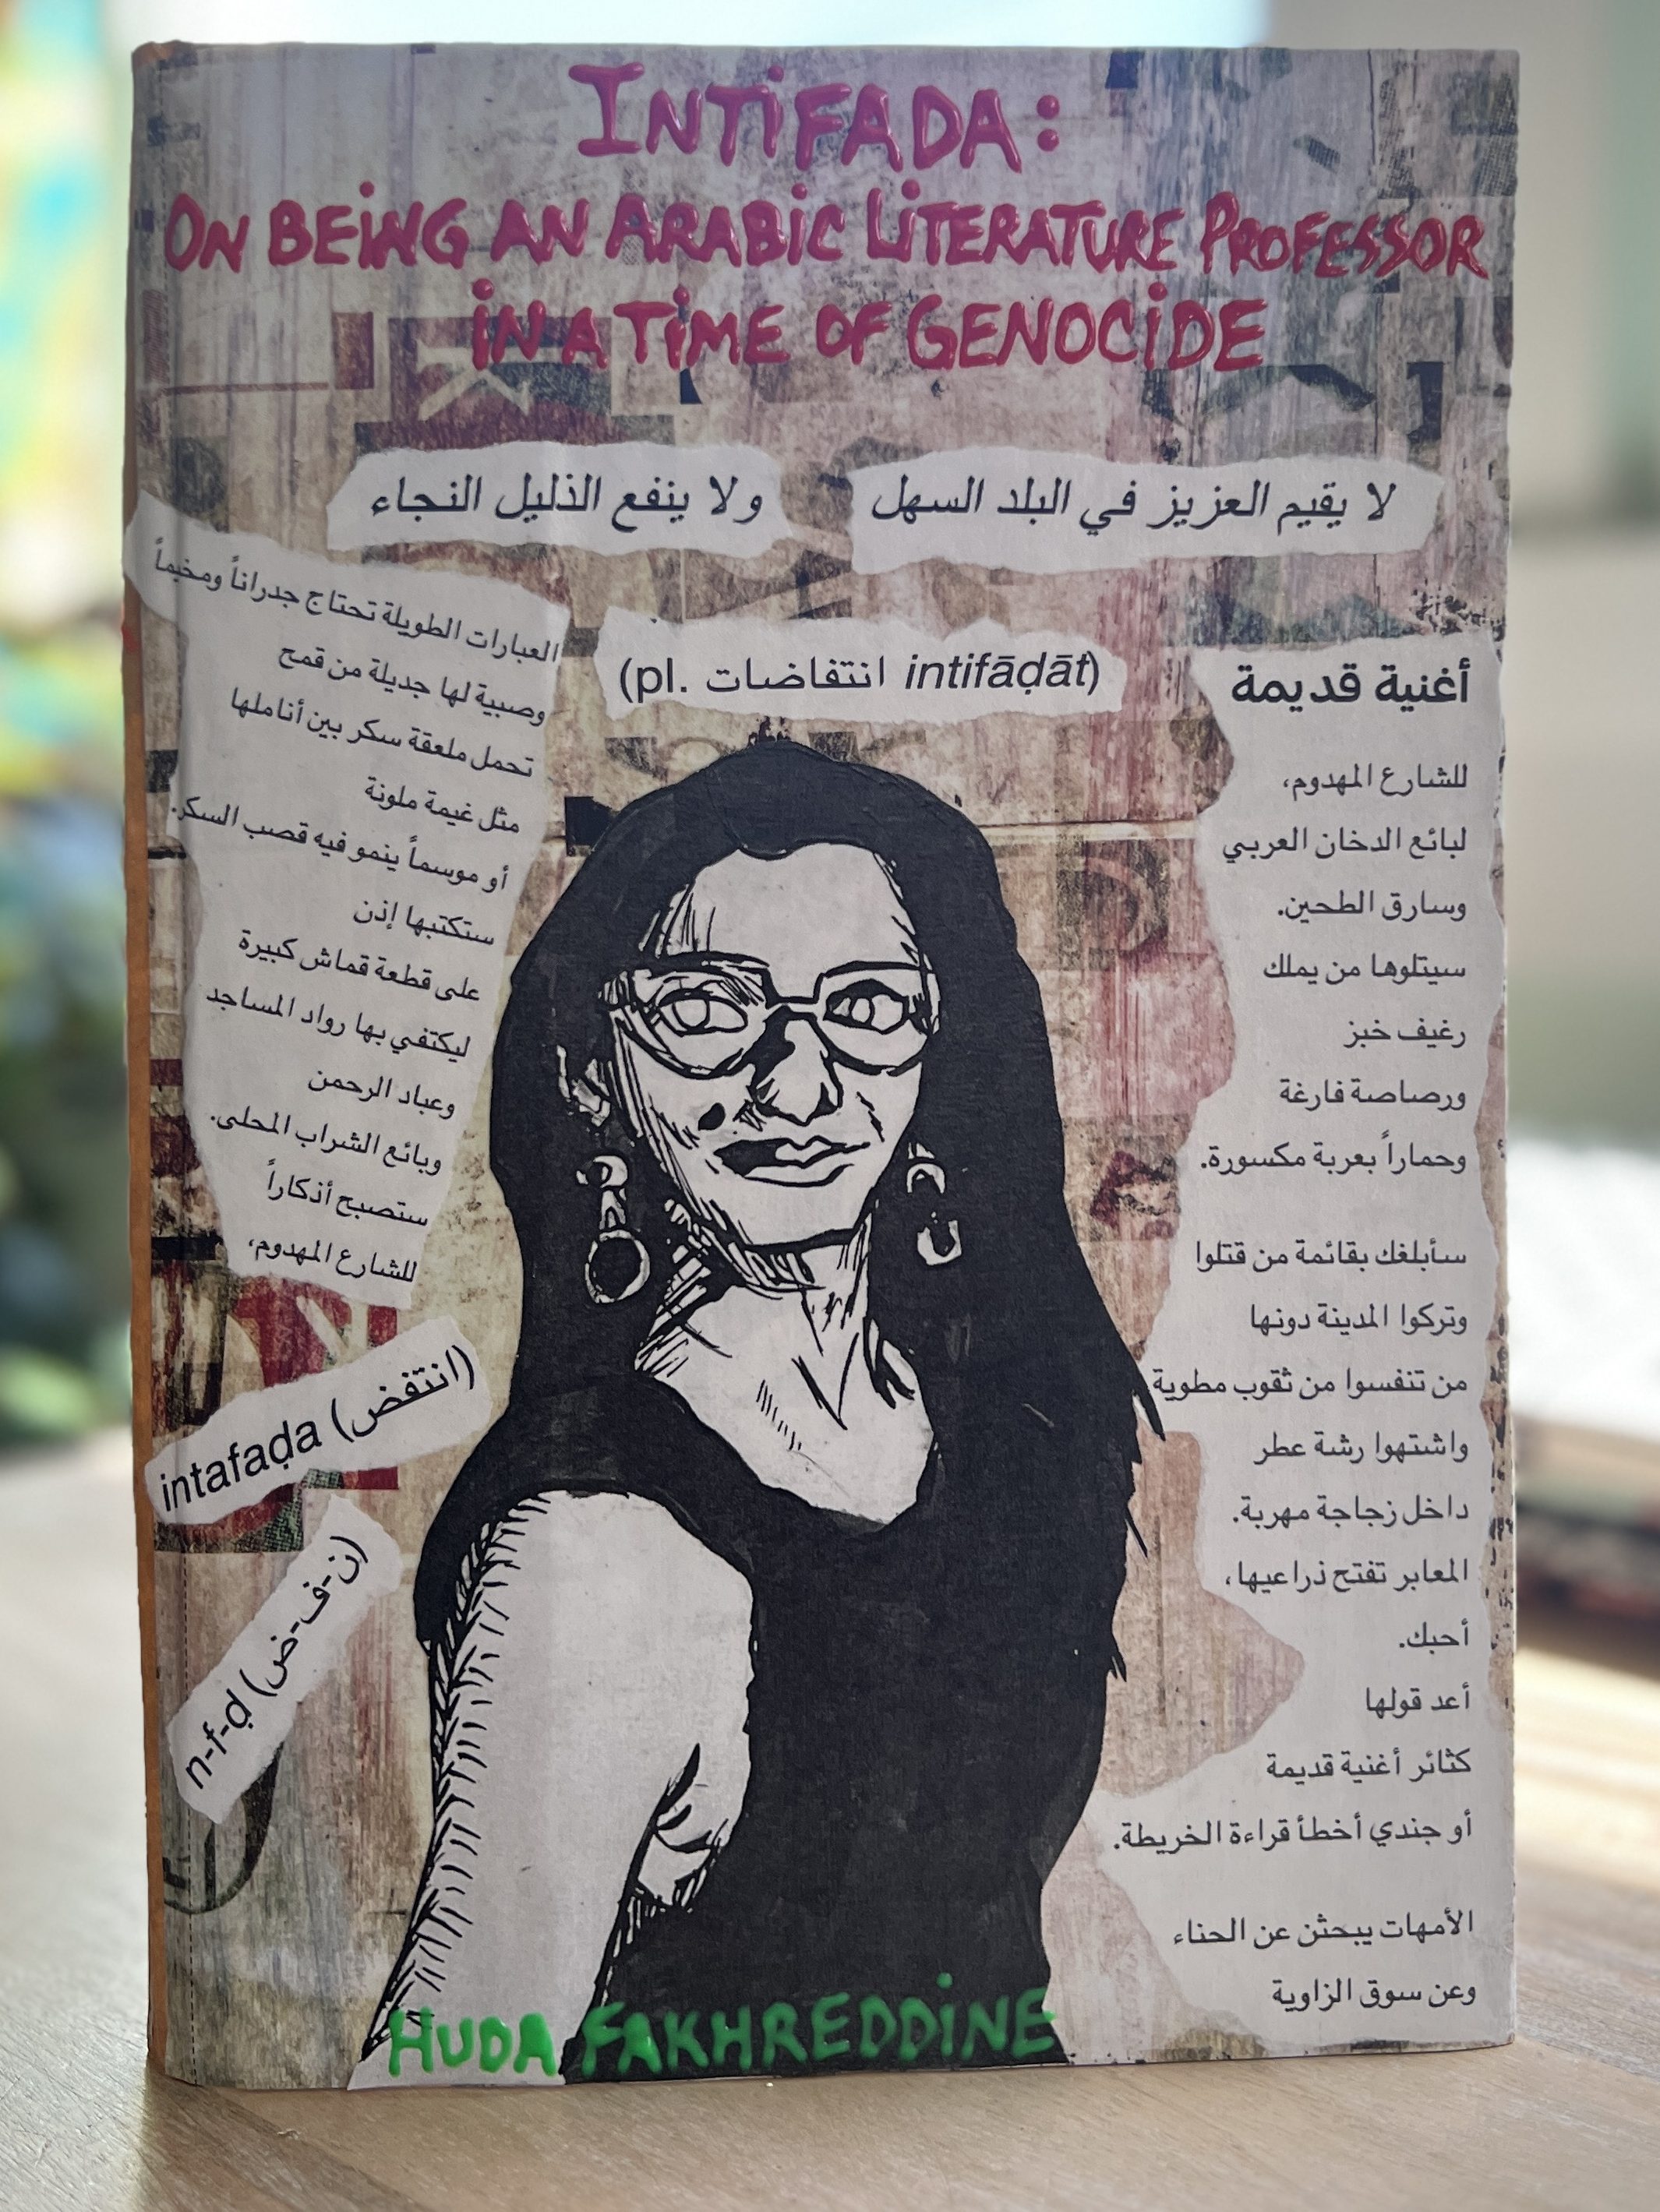 INTIFADA:
ON BEING AN ARABIC LITERATURE PROFESSOR
IN A TIME OF GENOCIDE
لا يقيم العزيز في البلد السهل
ولا ينفع الذليل النجاء
(pl. انتفاضات intifāḍāt)
أغنية قديمة
للشارع المهدوم،
لبائع الدخان العربي
وسارق الطحين.
سيتلوها من يملك
رغيف خبز
ورصاصة فارغة
وحماراً بعربة مكسورة.
سأبلغك بقائمة من قتلوا
وتركوا المدينة دونها
من تنفسوا من ثقوب مطوية
واشتهوا رشة عطر
داخل زجاجة مهربة.
المعابر تفتح ذراعيها،
أحبك.
أعد قولها
كثائر أغنية قديمة
أو جندي أخطأ قراءة الخريطة.
الأمهات يبحثن عن الحناء
وعن سوق الزاوية
العبارات الطويلة تحتاج جدراناً ومخيماً
وصبية لها جديلة من قمح
تحمل ملعقة سكر بين أناملها
مثل غيمة ملونة
أو موسماً ينمو فيه قصب السكر.
ستكتبها إذن
على قطعة قماش كبيرة
ليكتفي بها رواد المساجد
وعباد الرحمن
وبائع الشراب المحلى.
ستصبح أذكاراً
للشارع المهدوم،
intafaḍa (انتفض)
n-f-ḍ (ن-ف-ض)
HUDA FAKHREDDINE